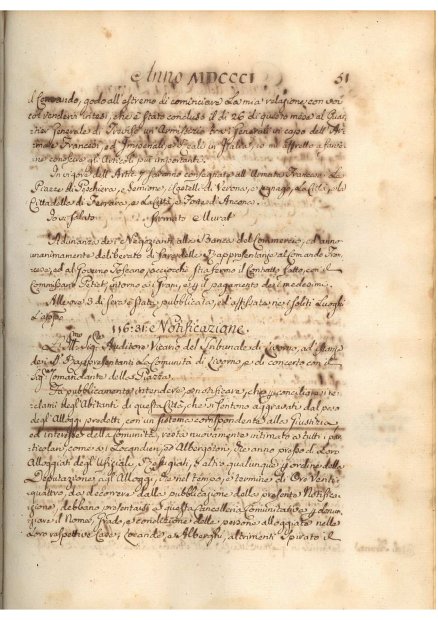 Anno MDCCCI 51
il Comando, godo all'estremo di cominciare la mia relazione con voi
col rendervi intesi, che è stato concluso il dì 26 di questo mese al Quar-
tier Generale di Treviso un Armistizio tra i Generali in capo dell'Ar-
mate Francesi, ed Imperiale, e Reale in Italia, io mi affretto a farve-
ne conoscere gli Articoli più importanti.
In vigore dell'Artic. saranno consegnate all'Armata Francese Le
Piazze di Peschiera, e Sermione, Castelli di Verona, e Legnago, La Città, e la
Cittadella di Ferrara, e La Città, e Forte d'Ancona.
firmato Murat
Adunanza dei Negozianti alla Banca del Commercio, ed anno
unanimamente deliberato di fare delle Rappresentanze al Comando Fran-
cese, ed al Governo Toscano, acciocchè stia fermo il Contratto fatto con il
Commissario intorno ai Grani, e il pagamento dei medesimi.
Alle ore 3 di sera è stata pubblicata, ed affissa nei soliti Luoghi
116:3: Notificazione
Sig. Auditore Vicario del Tribunale di Livorno, ad istanza
dei Rappresentanti La Comunità di Livorno, e di concerto con il
Sig. Comandante della Piazza.
Fa pubblicamente intendere, e notificare, che per conciliare i
reclami degl'Abitanti di questa Città, che si sentono aggravati dal peso
degl'Alloggi predetti, con un sistema corrispondente alla Giustizia
ed interesse della Comunità, resta nuovamente intimato a tutti i par-
ticolari, come ai Locandieri, ed Albergatori, che anno presso di Loro
Alloggiati degl'Ufiziali, Refugiati, o altro qualunque per ordine della
Deputazione agl'Alloggi, che nel tempo, e termine di Ore Venti-
quattro, da decorrere dalla pubblicazione della presente Notifica-
zione, debbano presentarsi a questa Cancelleria Comunitativa, e denun-
ziare il Nome, Grado, e condizione delle persone alloggiate nelle
Loro respettive Case, Locande, e Alberghi, altrimenti spirato il